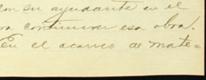 con su ayudante en el
ra continuar esa obra.
En el acarreo de mate-